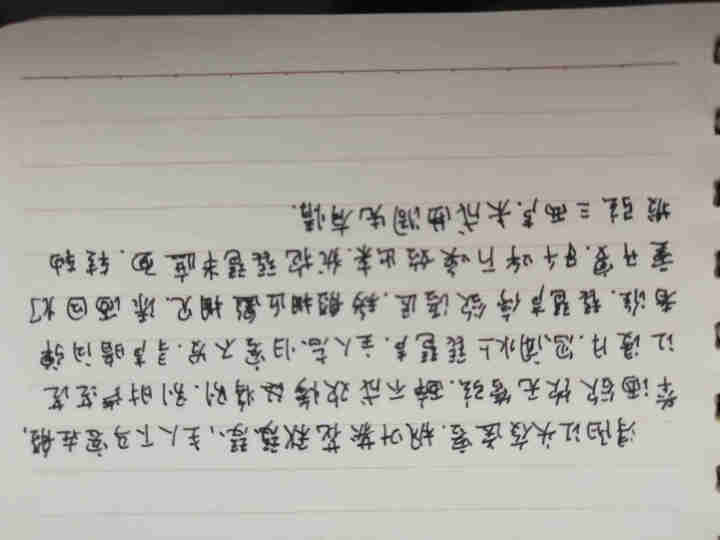 浔阳江头夜送客.枫叶荻花秋瑟瑟.主人下马客在船,
举酒欲饮无管弦.醉不成欢惨将别.别时茫茫
江浸月.忽闻水上琵琶声.主人忘归客不发.寻声暗问弹
者谁.琵琶声停欲语迟.移船相近邀相见.添酒回灯
重开宴.千呼万唤始出来.犹抱琵琶半遮面.转轴
拨弦三两声.未成曲调先有情.